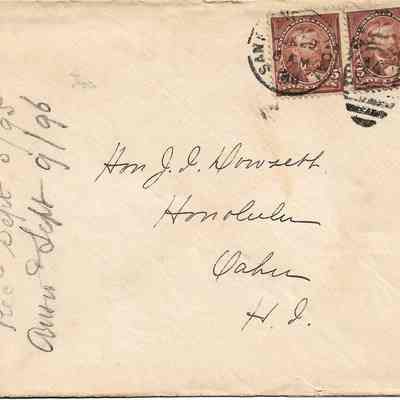 SAN
Hon J. I. Dowsett
Honolulu
Oahu
H. I.
Rec'd Sept 8/95
Answd Sept 9/96